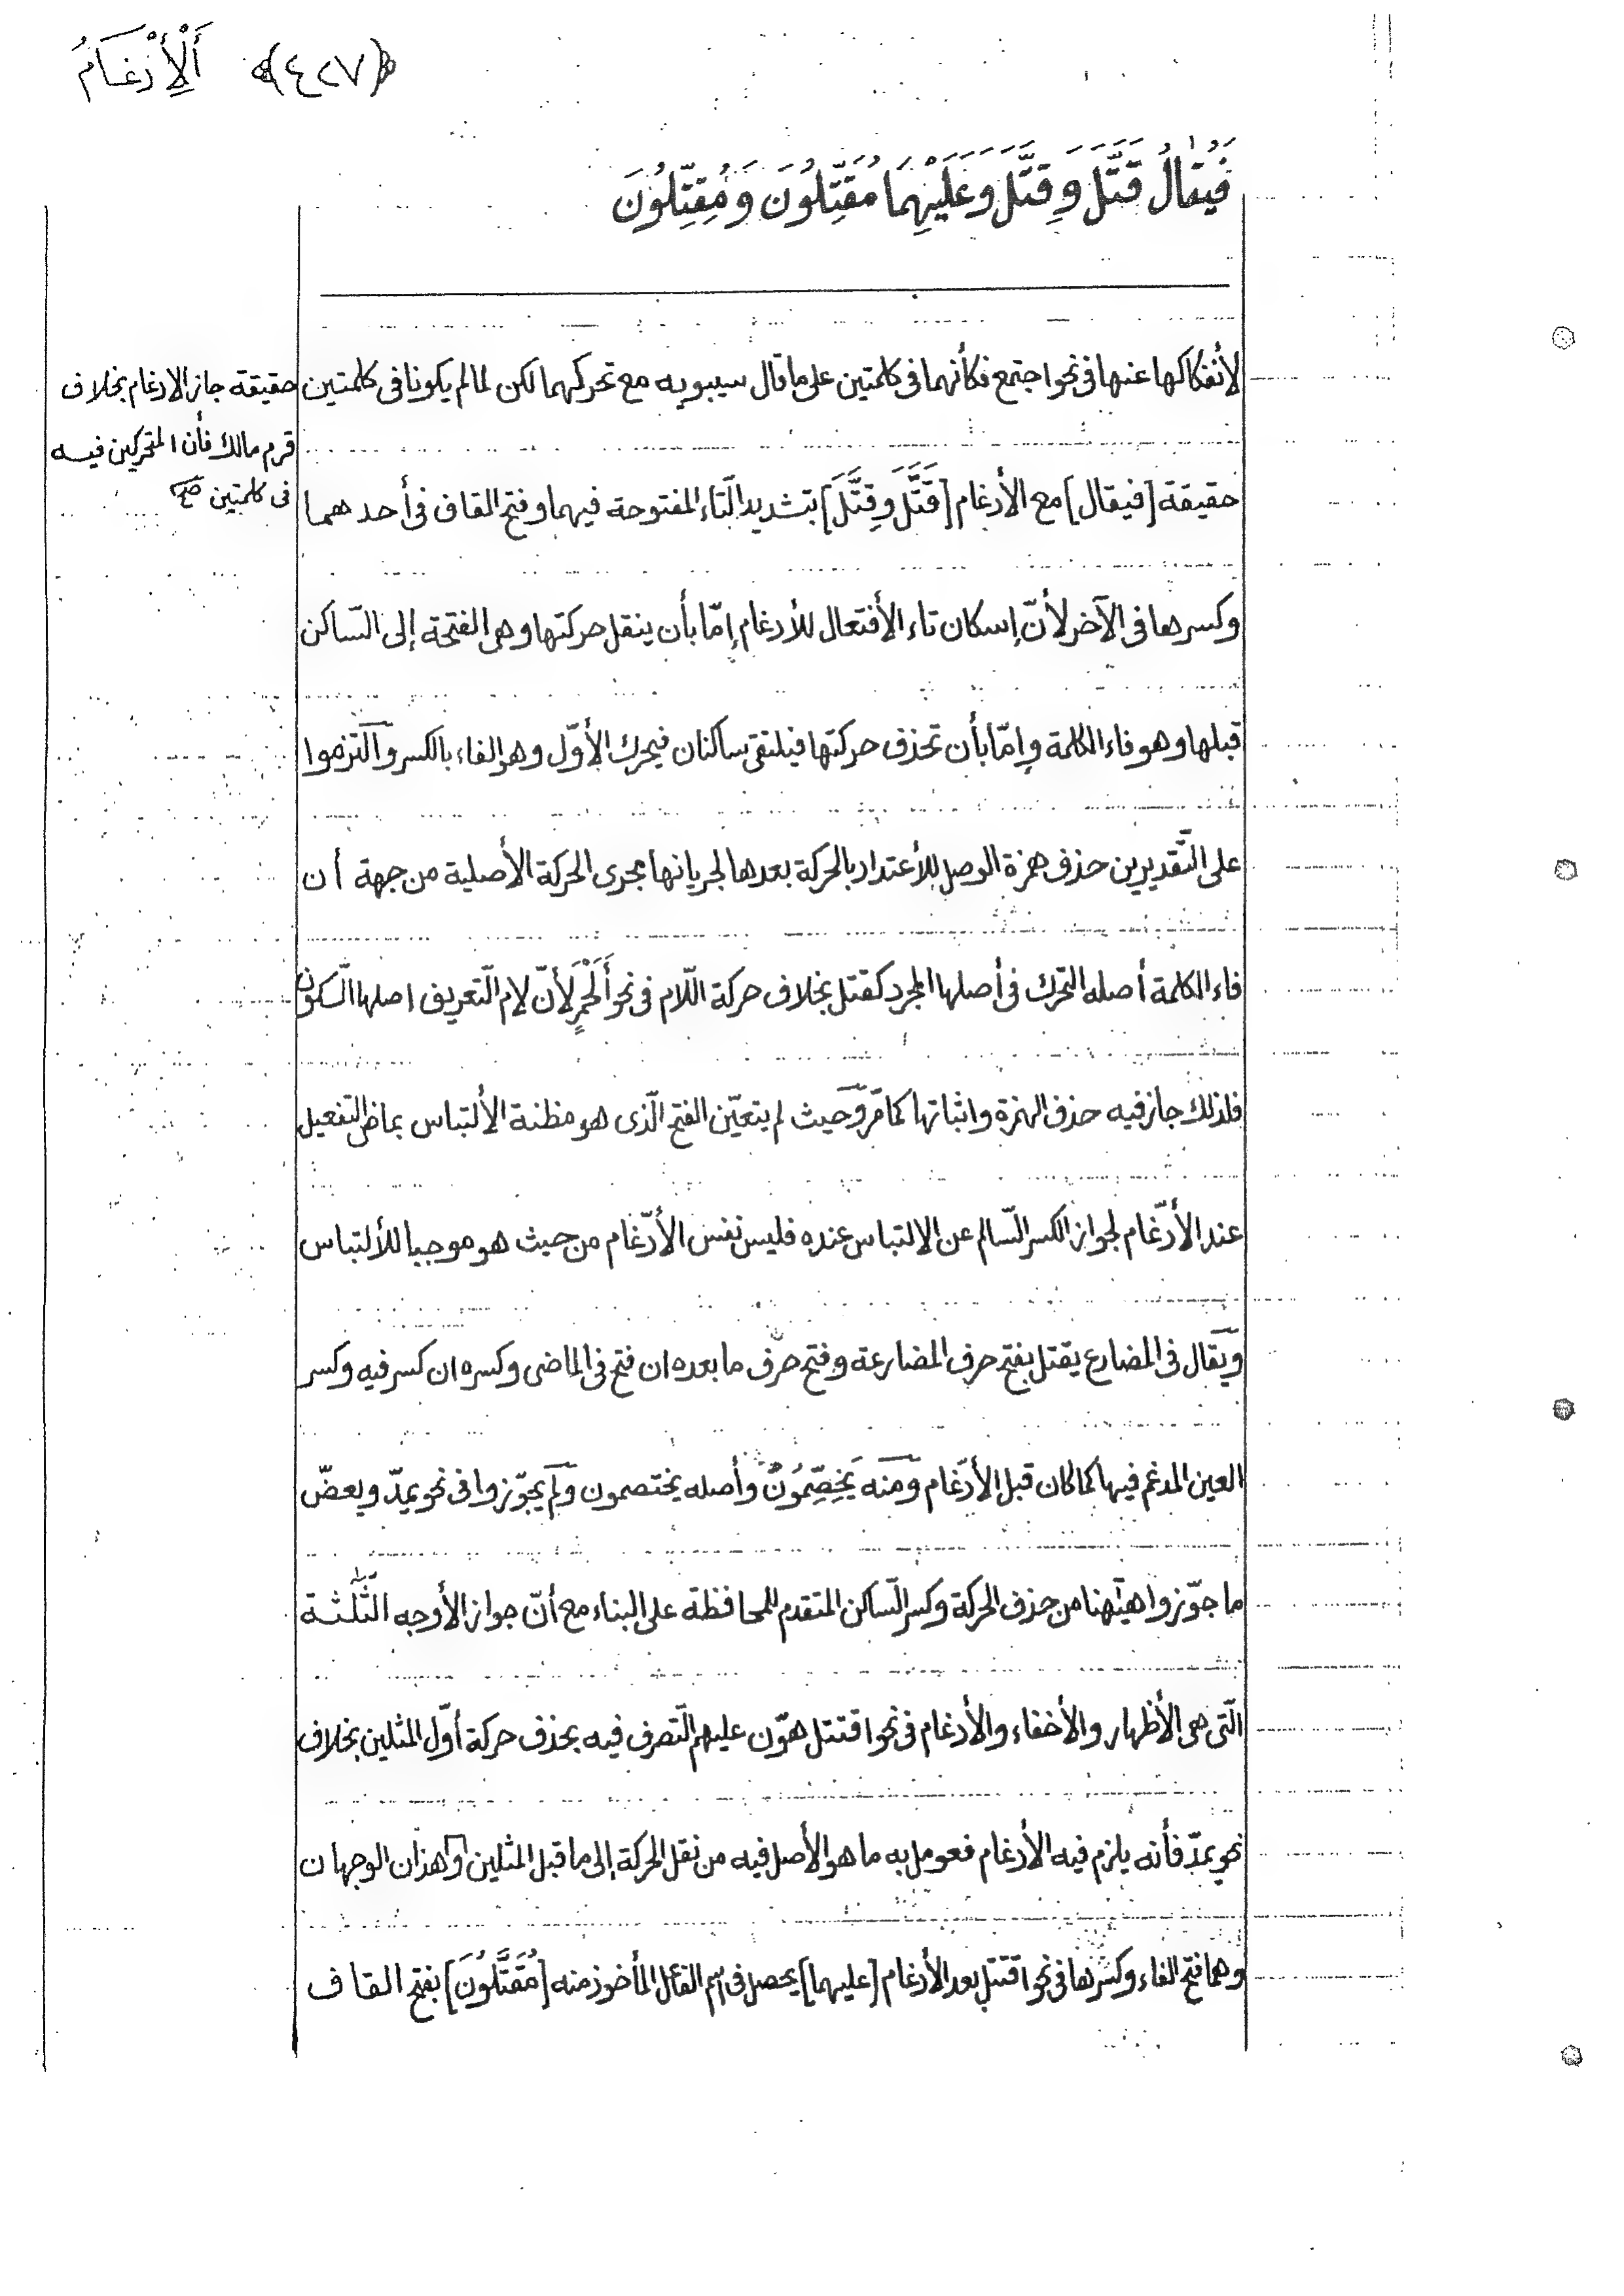 ﴿٤٢٧﴾ أَلْأِدْغَامُ
فَيُقَالُ قَتَّلَ وَقِتَّلَ وَعَلَيْهِمَا مُقَتِّلُونَ وَمُقِتِّلُونَ
لأنفكاكها عنها فى نحو اجتمع فكأنهما فى كلمتين على ما قال سيبويه مع تحركهما لكن لما لم يكونا فى كلمتين
حقيقة جاز الادغام بخلاف
قرم مالك فأن المتحركين فيه
فى كلمتين صح
حقيقة [فيقال] مع الأدغام [قَتَّلَ وَقِتَّلَ] بتشديد التّاء المفتوحة فيهما وفتح القاف فى أحدهما
وكسرها فى الآخر لأنّ إسكان تاء الأفتعال للأدغام إمّا بأن ينقل حركتها وهى الفتحة إلى السّاكن
قبلها وهو فاء الكلمة وإمّا بأن تحذف حركتها فيلتقى ساكنان فيحرك الأوّل وهو الفاء بالكسر والتزموا
على التّقديرين حذف همزة الوصل للأعتداد بالحركة بعدها لجريانها مجرى الحركة الأصلية من جهة أن
فاء الكلمة أصله التحرك فى أصلها المجرد كقتل بخلاف حركة اللّام فى نحو أَلَحْمَرٍ لأنّ لام التّعريف اصلها السّكون
فلذلك جاز فيه حذف الهمزة واثباتها كما مرّ وحيث لم يتعيّن الفتح الّذى هو مظنة الألتباس بماضى التفعيل
عند الأدّغام لجواز الكسر السّالم عن الالتباس عنده فليس نفس الأدّغام من حيث هو موجبا للألتباس
ويقال فى المضارع يقتل بفتح حرف المضارعة وفتح حرف ما بعده ان فتح فى الماضى وكسره ان كسر فيه وكسر
العين المدغم فيها كما كان قبل الأدّغام ومنه يَخِصِّمُونَ وأصله يختصمون ولم يجوّزوا فى نحو يمدّ ويعضّ
ما جوّزوا هيٓهنا من حذف الحركة وكسر السّاكن المتقدم للمحافظة على البناء مع أنّ جواز الأوجه الثّلٰثة
الّتى هى الأظهار والأخفاء والأدغام فى نحو اقتتل هوّن عليهم التّصرف فيه بحذف حركة أوّل المثلين بخلاف
نحو يمدّ فأنه يلزم فيه الأدغام فعومل به ما هو الأصل فيه من نقل الحركة إلى ما قبل المثلين وهذان الوجهان
وهما فتح الفاء وكسرها فى نحو اقتتل بعد الأدغام [عليهما] يحصل فى اسم الفاعل المأخوذ منه [مُقَتِّلُونَ] بفتح القاف